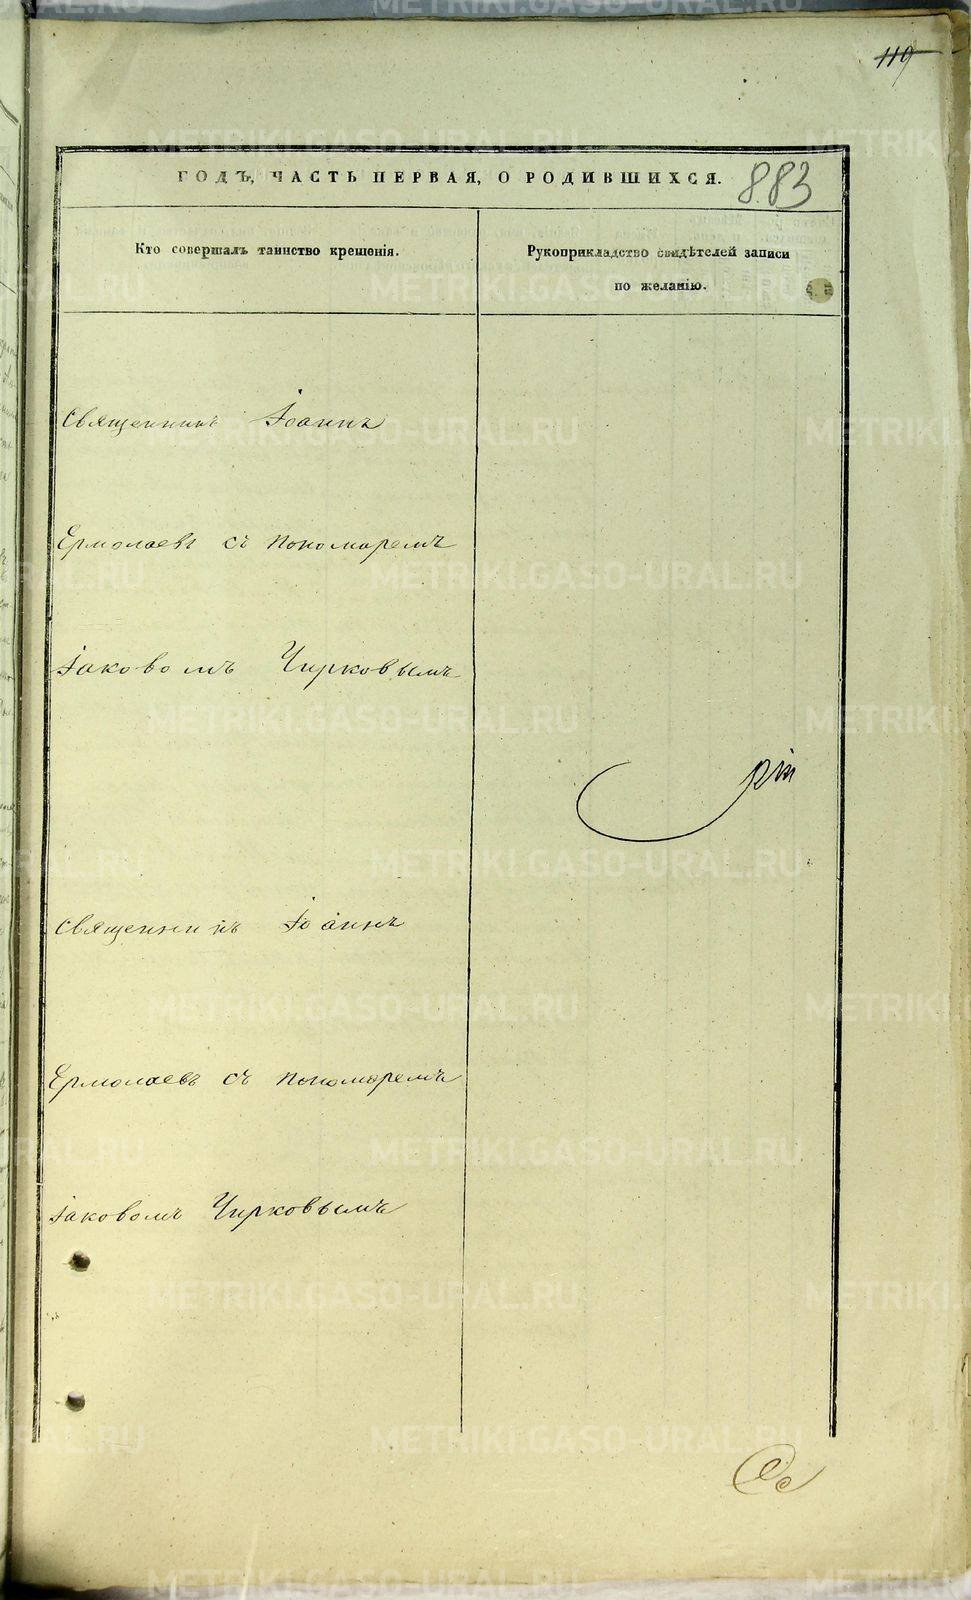 119
ГОДЪ, ЧАСТЬ ПЕРВАЯ, О РОДИВШИХСЯ.
883
Кто совершалъ таинство крещенія.
Рукоприкладство свидѣтелей записи
по желанію.
Священникъ Іоаннъ
Ермолаевъ съ пономаремъ
Іаковомъ Чирковымъ
Священникъ Іоаннъ
Ермолаевъ съ пономаремъ
Іаковомъ Чирковымъ
METRIKI.GASO-URAL.RU